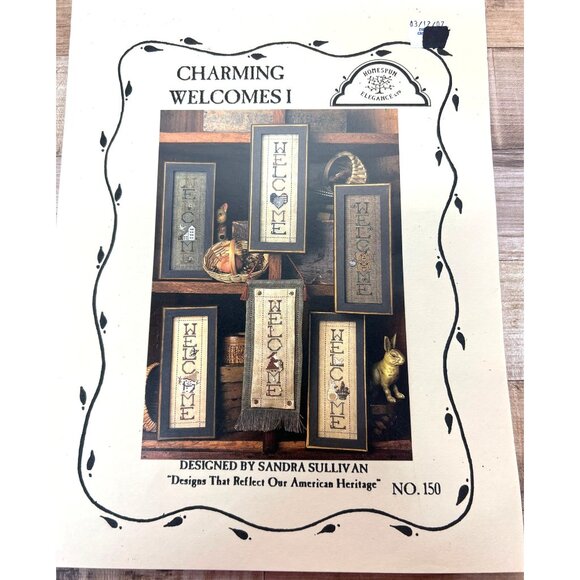 03/12/07
CHARMING
WELCOMES I
HOMESPUN
ELEGANCE LTD
WELCOME
WELCOME
WELCOME
WELCOME
WELCOME
WELCOME
DESIGNED BY SANDRA SULLIVAN
"Designs That Reflect Our American Heritage"
NO. 150